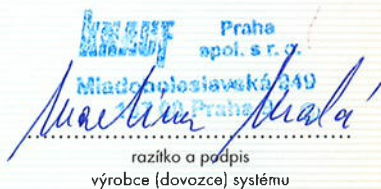 KNAUF Praha
spol. s r. o.
Mladoboleslavská 949
Praha 9
razítko a podpis
výrobce (dovozce) systému